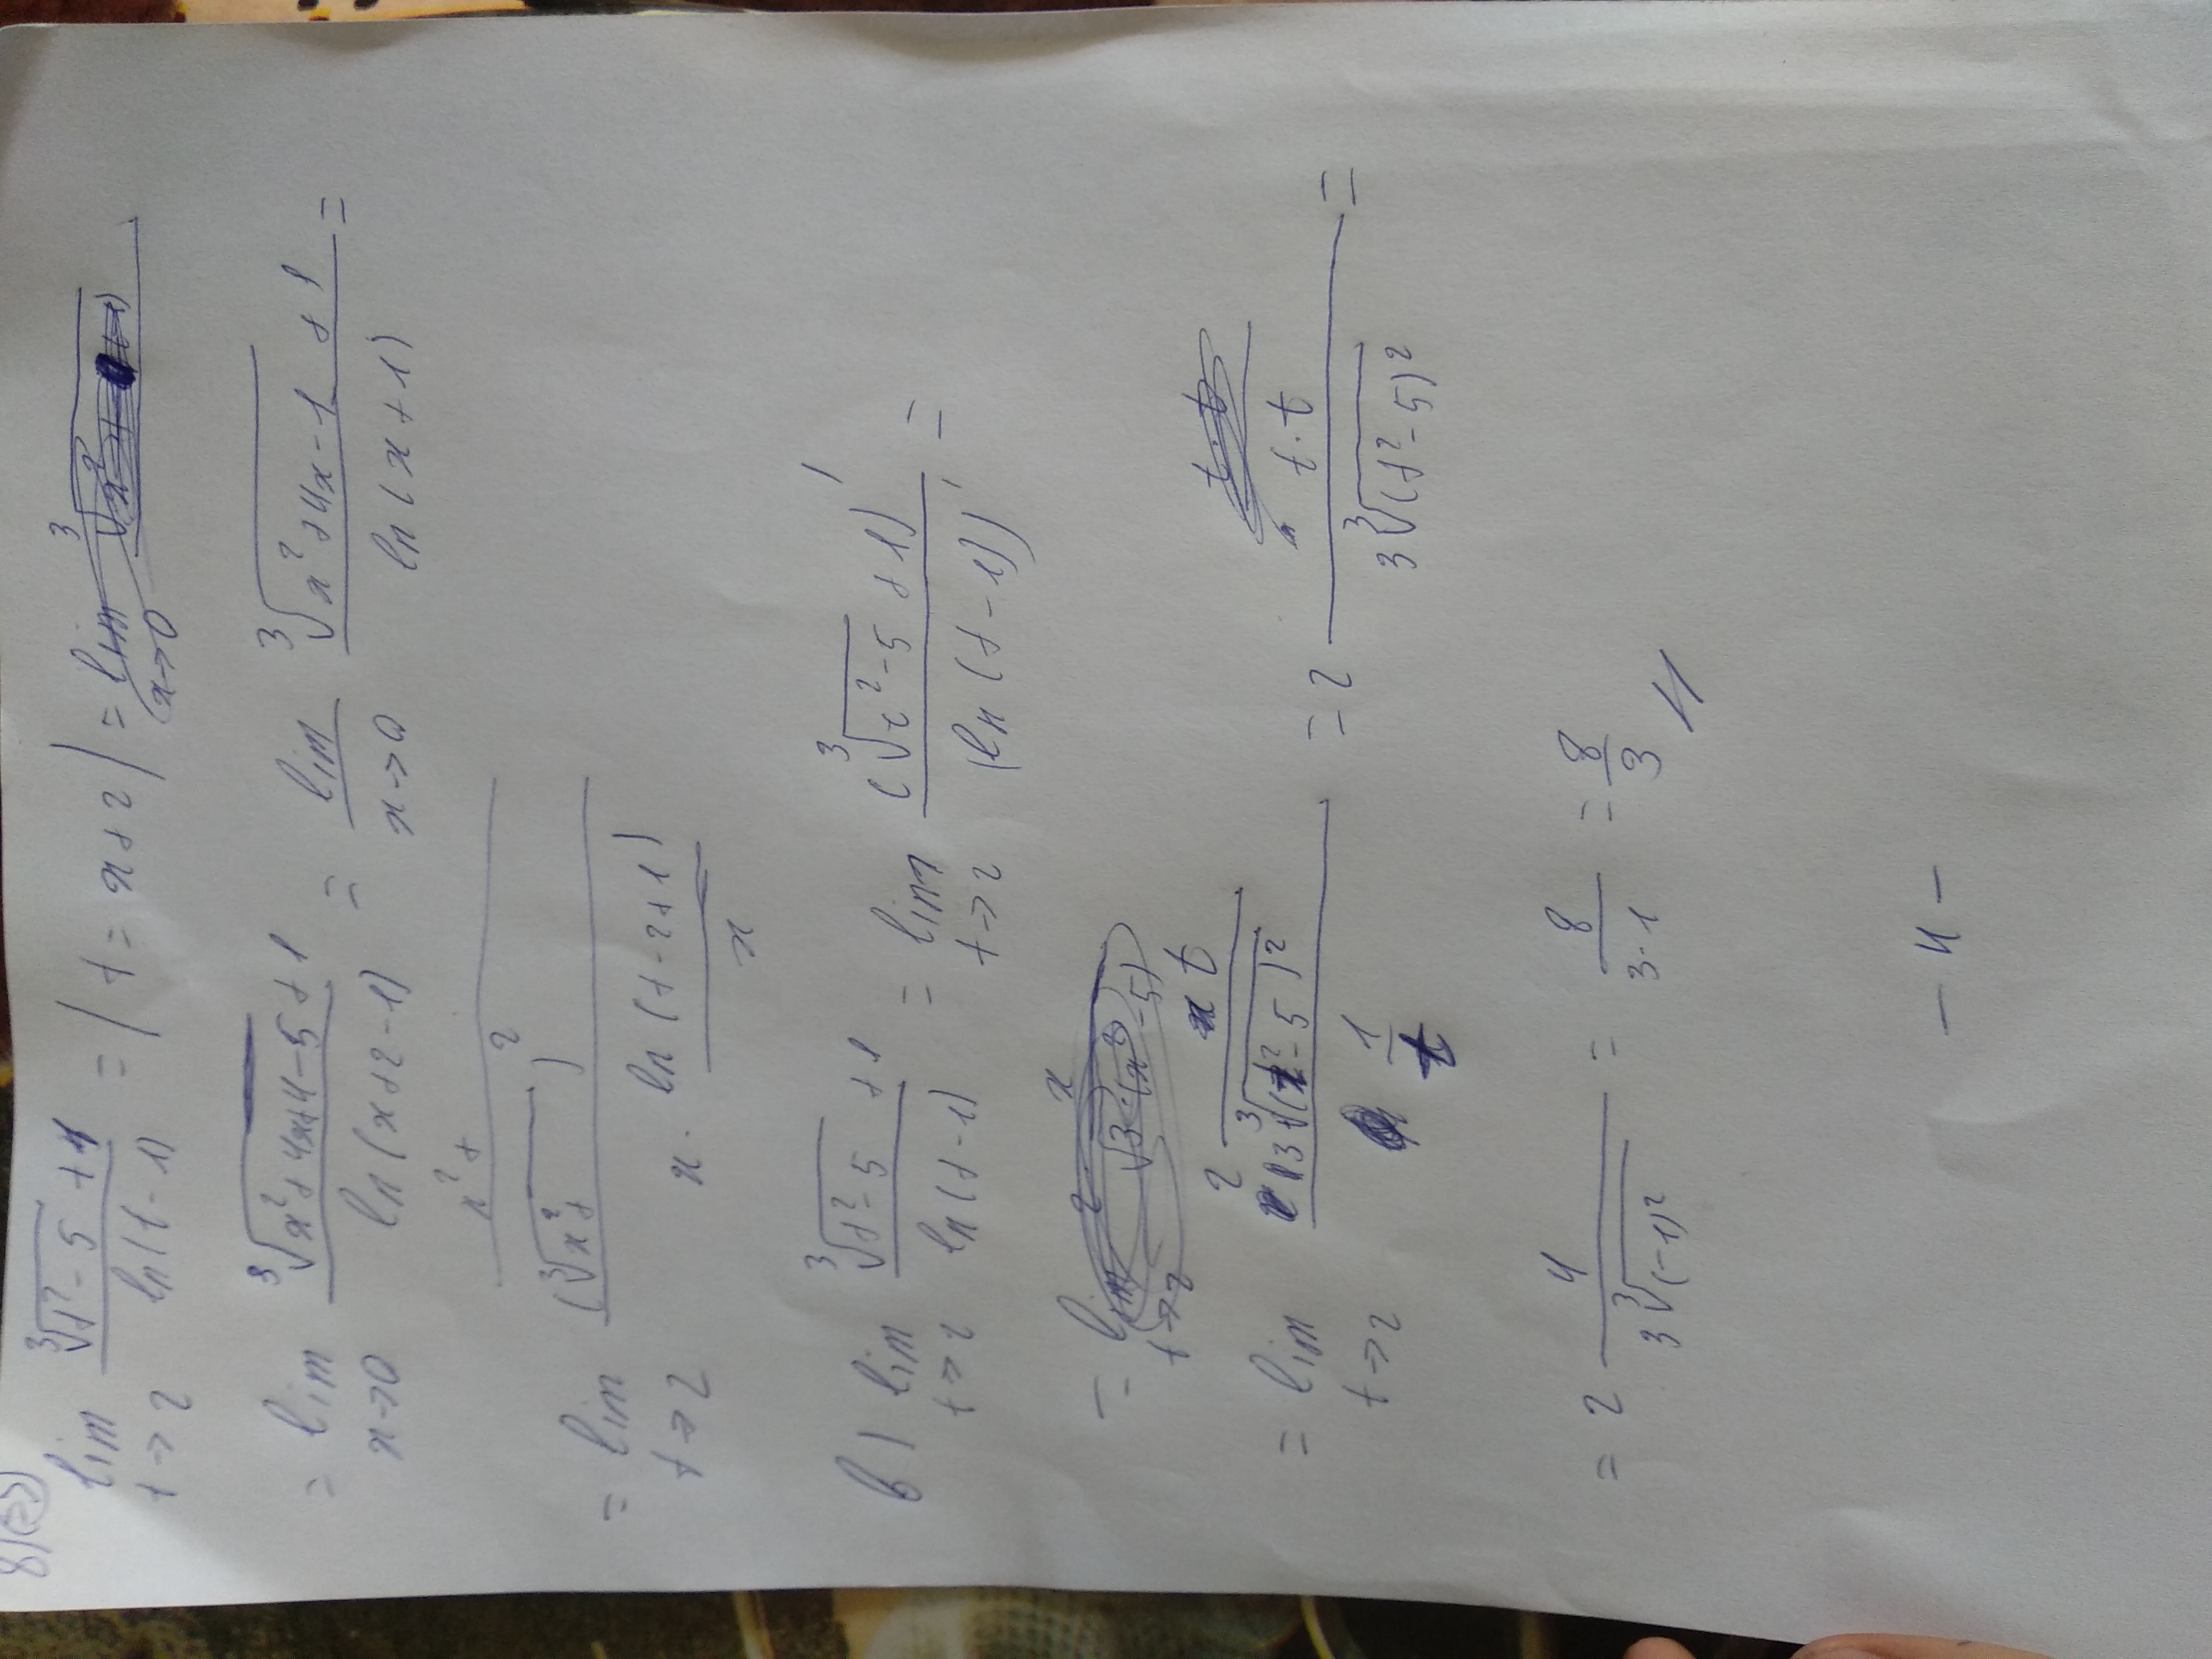 8)
lim t→2 ∛(t²-5) + 1 / ln(t-1) = | t = x+2 | = lim x→0
= lim x→0 ∛(x²+4x+4-5) + 1 / ln(x+2-1) = lim x→0 ∛(x²+4x-1) + 1 / ln(x+1) =
x²+
= lim t→2 (∛x²+ )² / x · ln(t-2+1) / x
б) lim t→2 ∛(t²-5) + 1 / ln(t-1) = lim t→2 (∛(t²-5) + 1)' / (ln(t-1))' =
= lim t→2
= lim t→2 2 t / 3∛(t²-5)² / 1 / t = 2 t·t / 3∛(t²-5)² =
= 2 4 / 3∛(-1)² = 8 / 3·1 = 8 / 3 //
- 4 -